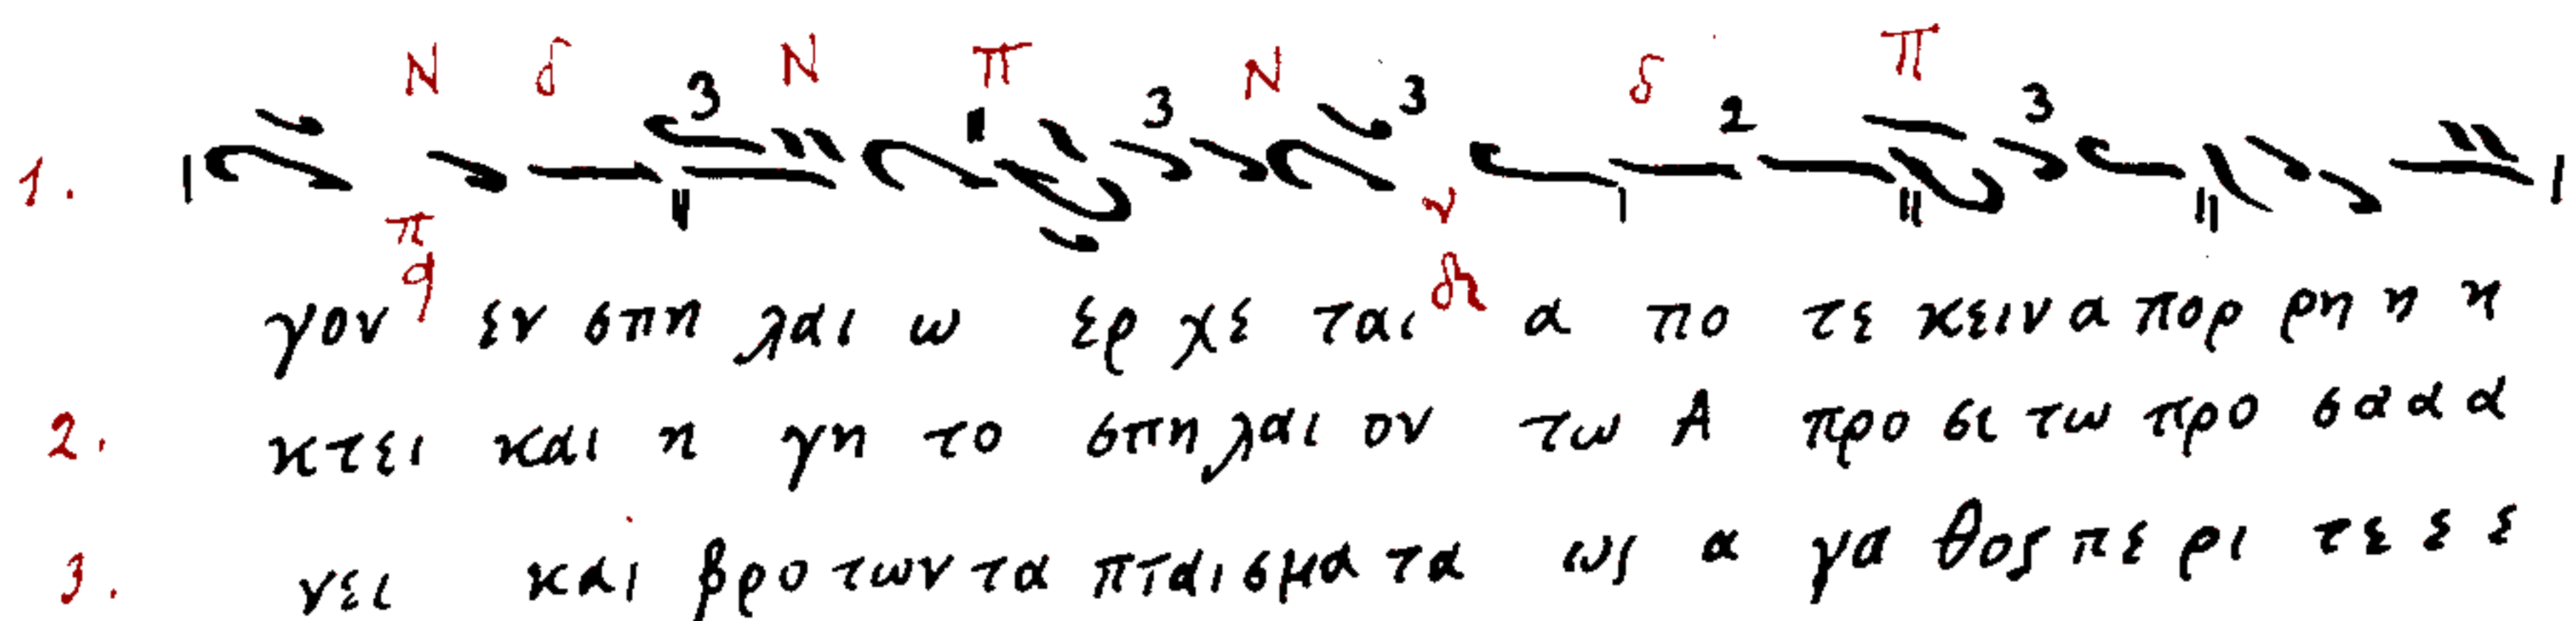 Ν δ Ν π Ν δ π
3 3 3 2 3
1.
π q ν δι
γον εν σπη λαι ω ερ χε ται α πο τε κειν α πορ ρη η η
2. κτει και η γη το σπη λαι ον τω Α προ σι τω προ σα α α
3. νει και βρο των τα πται σμα τα ως α γα θος πε ρι τε ε ε